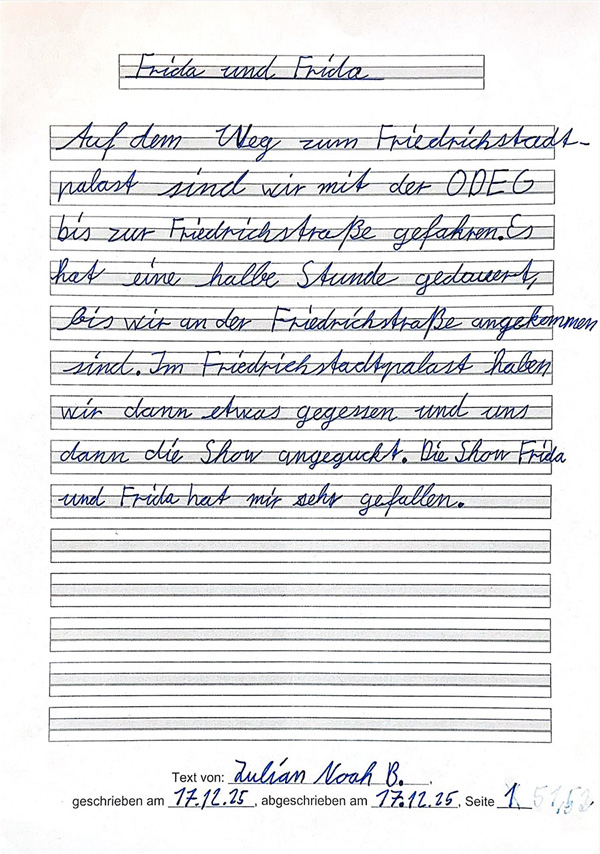 Frida und Frida
Auf dem Weg zum Friedrichstadt-
palast sind wir mit der ODEG
bis zur Friedrichstraße gefahren. Es
hat eine halbe Stunde gedauert,
bis wir an der Friedrichstraße angekommen
sind. Im Friedrichstadtpalast haben
wir dann etwas gegessen und uns
dann die Show angeguckt. Die Show Frida
und Frida hat mir sehr gefallen.
Text von: Julian Noah B.
geschrieben am 17.12.25, abgeschrieben am 17.12.25, Seite 1 51,52